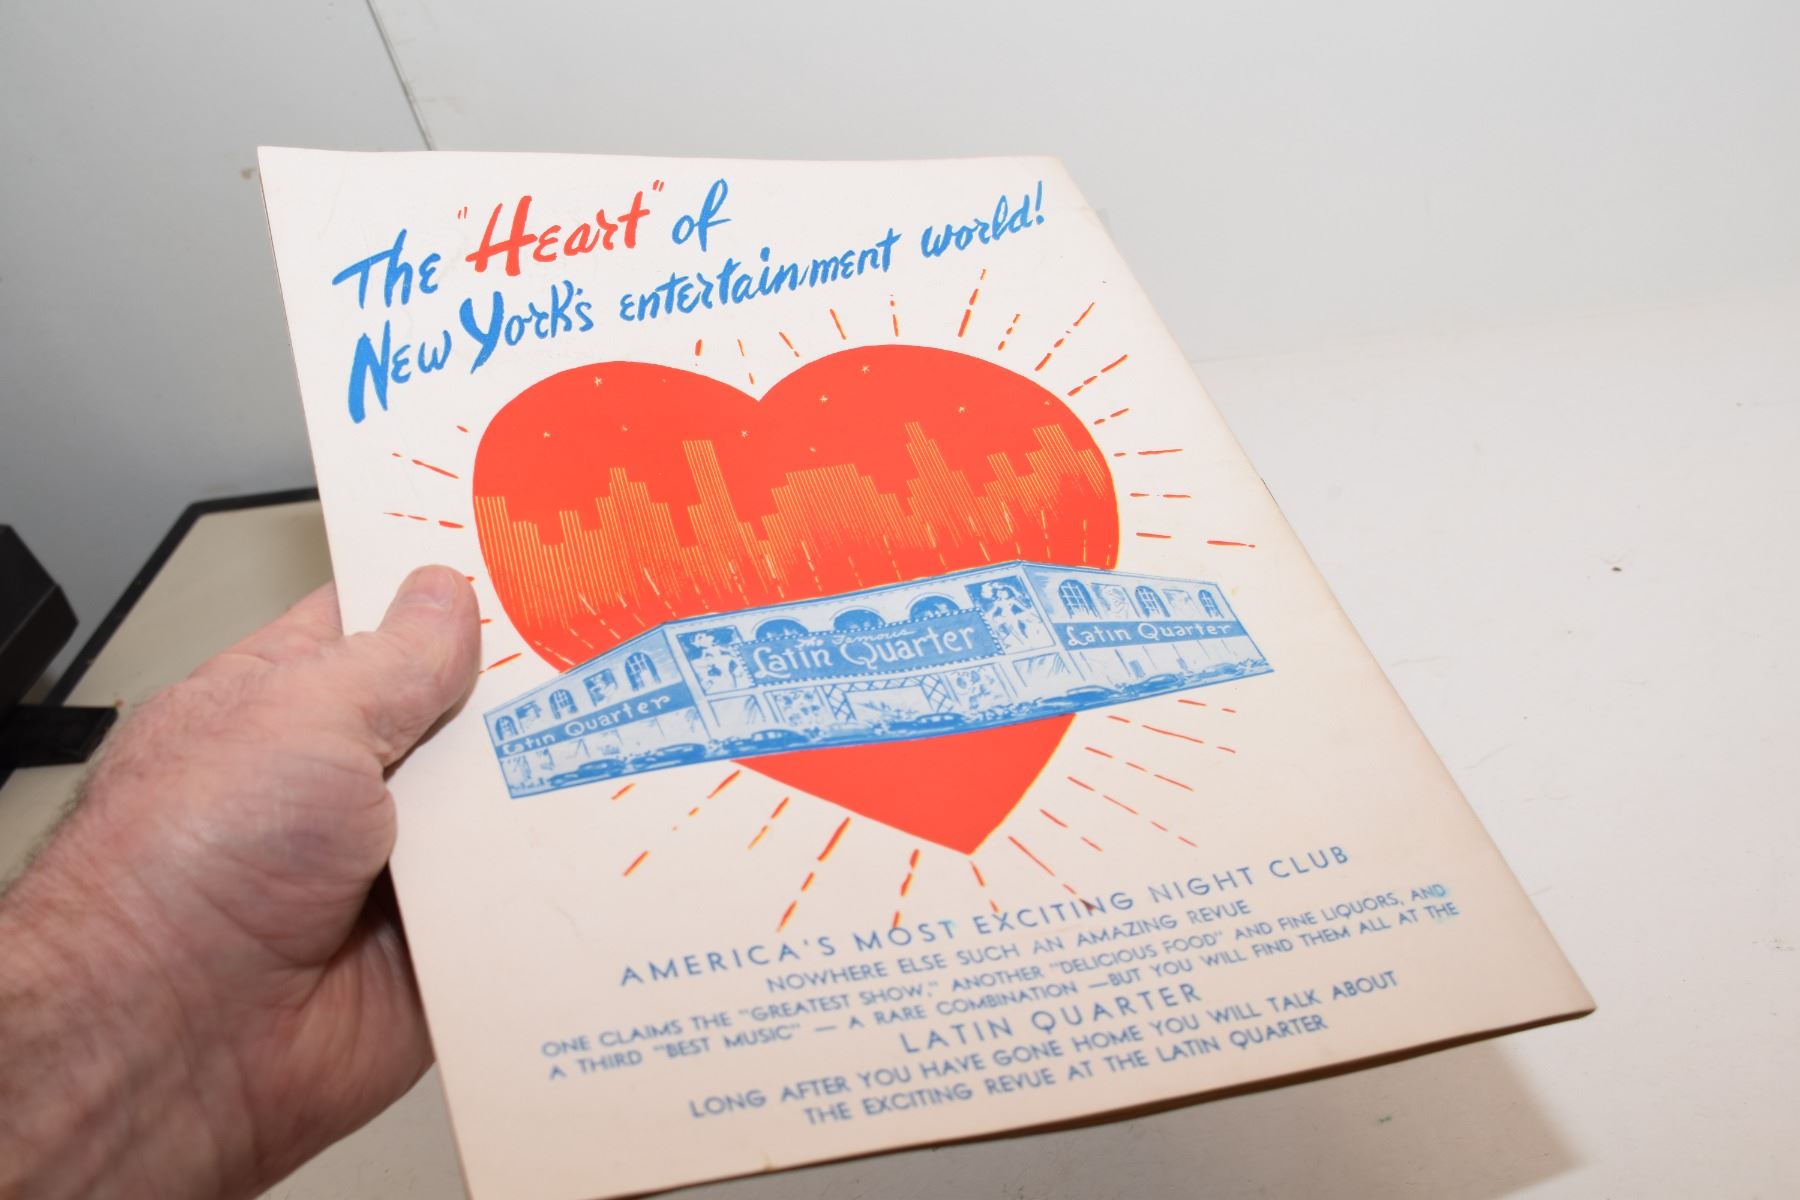 The "Heart" of
New York's entertainment world!
The Famous
Latin Quarter
Latin Quarter
Latin Quarter
AMERICA'S MOST EXCITING NIGHT CLUB
NOWHERE ELSE SUCH AN AMAZING REVUE
ONE CLAIMS THE "GREATEST SHOW," ANOTHER "DELICIOUS FOOD" AND FINE LIQUORS, AND
A THIRD "BEST MUSIC" — A RARE COMBINATION —BUT YOU WILL FIND THEM ALL AT THE
LATIN QUARTER
LONG AFTER YOU HAVE GONE HOME YOU WILL TALK ABOUT
THE EXCITING REVUE AT THE LATIN QUARTER